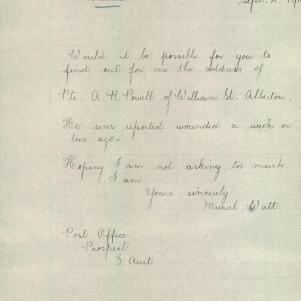 Sept. 2
Would it be possible for you to
find out for me the address of
Pte. A. R. Powell of William St. Alberton.
He was reported wounded a week or
two ago.
Hoping I am not asking too much
I am
Yours sincerely
Muriel Watt
Post Office
Prospect
S. Aust.